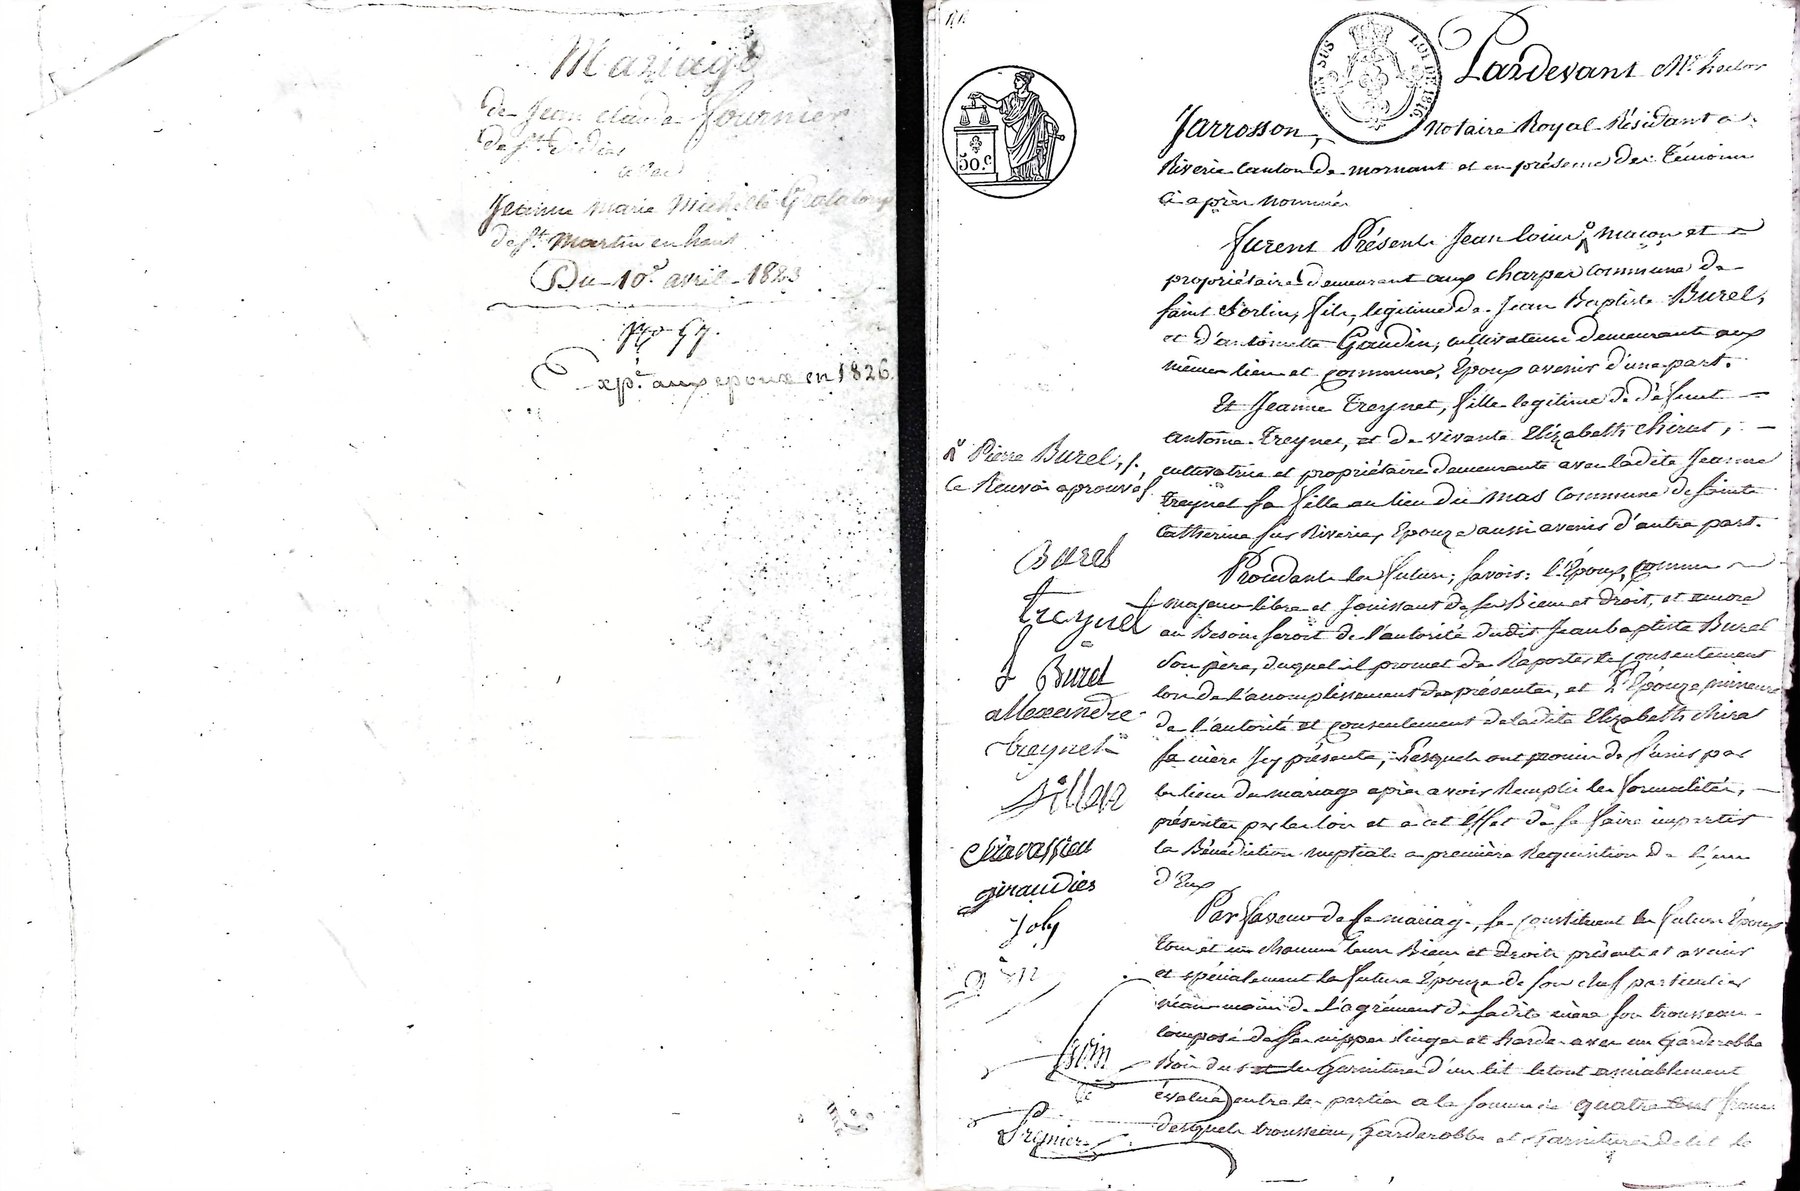 Mariage
de Jean Claude Fournier
de St Didier
avec
Jeanne Marie Michelle Grataloup
de St Martin en haut
Du 10 avril 1823
No 57.
Expé. aux epoux en 1826
50.c
EN SUS
LOI DE 1816
Pardevant Me hector
Jarrosson, Notaire Royal Résidant a
Riverie Canton de mornant et en présence des Témoins
Ci après Nommés
furent Présents Jean louis maçon et
propriétaire demeurant aux charpes Commune de
saint Sorlin, fils légitime de Jean Baptiste Burel,
et d'antoinette Gaudin, cultivateurs demeurants aux
mêmes lieu et Commune, Epoux avenir d'une part.
Et Jeanne Treynet, fille legitime de défunt
antoine Treynet, et de vivante Elizabeth chirat,
cultivatrice et propriétaire demeurante avec ladite Jeanne
Treynet sa fille au lieu du mas Commune de sainte
Catherine sur Riverie, Epouze aussi avenir d'autre part.
Procédants les futurs, savoir: l'Epoux, comme
majeur libre et Jouissant de ses Biens et droits, et encore
au Besoin seroit de l'autorité dudit Jean baptiste Burel
Son père, duquel il promet de Raporter le consentement
lors de l'accomplissement des présentes, et L'Epouze mineure
de l'autorité et consentement de ladite Elizabeth chirat
sa mère Icy présente, Lesquels ont promis de s'unir par
les liens du mariage après avoir Remplis les formalités,
présentes par les lois et a cet Effet de se faire impartir
la Bénédiction nuptiale a première Requisition de l'un
d'Eux
Par faveur de ce mariage, se constituent les futurs Epoux
tous et un chacuns leurs Biens et droits présents et avenir
et spécialement la future Epouze de son chef particulier
néanmoins de l'agrément de sadite mère son trousseau
composé de ses nippes linges et hardes avec un Garderobbe
Bois dur et les Garnitures d'un lit le tout amiablement
évalué entre les parties a la somme de quatre cents francs
desquels trousseau, Garderobbe et Garnitures de lit le
Pierre Burel,
Ce Renvoi aprouvé
Burel
treynet
Burel
allexandre
treynet
chavassieu
giraudier
Joly
Premier